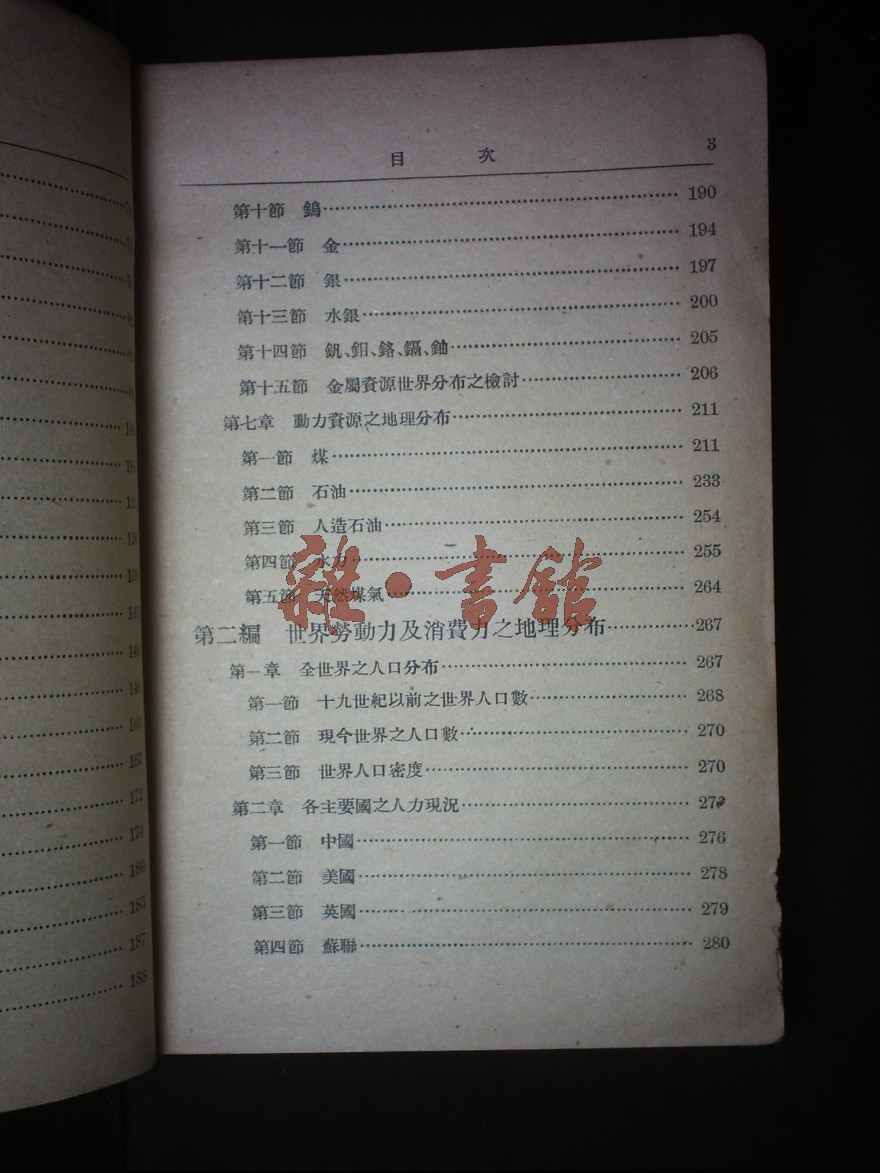 目 次 3
第十節 鎢 190
第十一節 金 194
第十二節 銀 197
第十三節 水銀 200
第十四節 釩、鉬、鉻、鎘、鈾 205
第十五節 金屬資源世界分布之檢討 206
第七章 動力資源之地理分布 211
第一節 煤 211
第二節 石油 233
第三節 人造石油 254
第四節 水力 255
第五節 天然煤氣 264
雜·書館
第二編 世界勞動力及消費力之地理分布 267
第一章 全世界之人口分布 267
第一節 十九世紀以前之世界人口數 268
第二節 現今世界之人口數 270
第三節 世界人口密度 270
第二章 各主要國之人力現況
第一節 中國 276
第二節 美國 278
第三節 英國 279
第四節 蘇聯 280
172
174
180
185
187
188